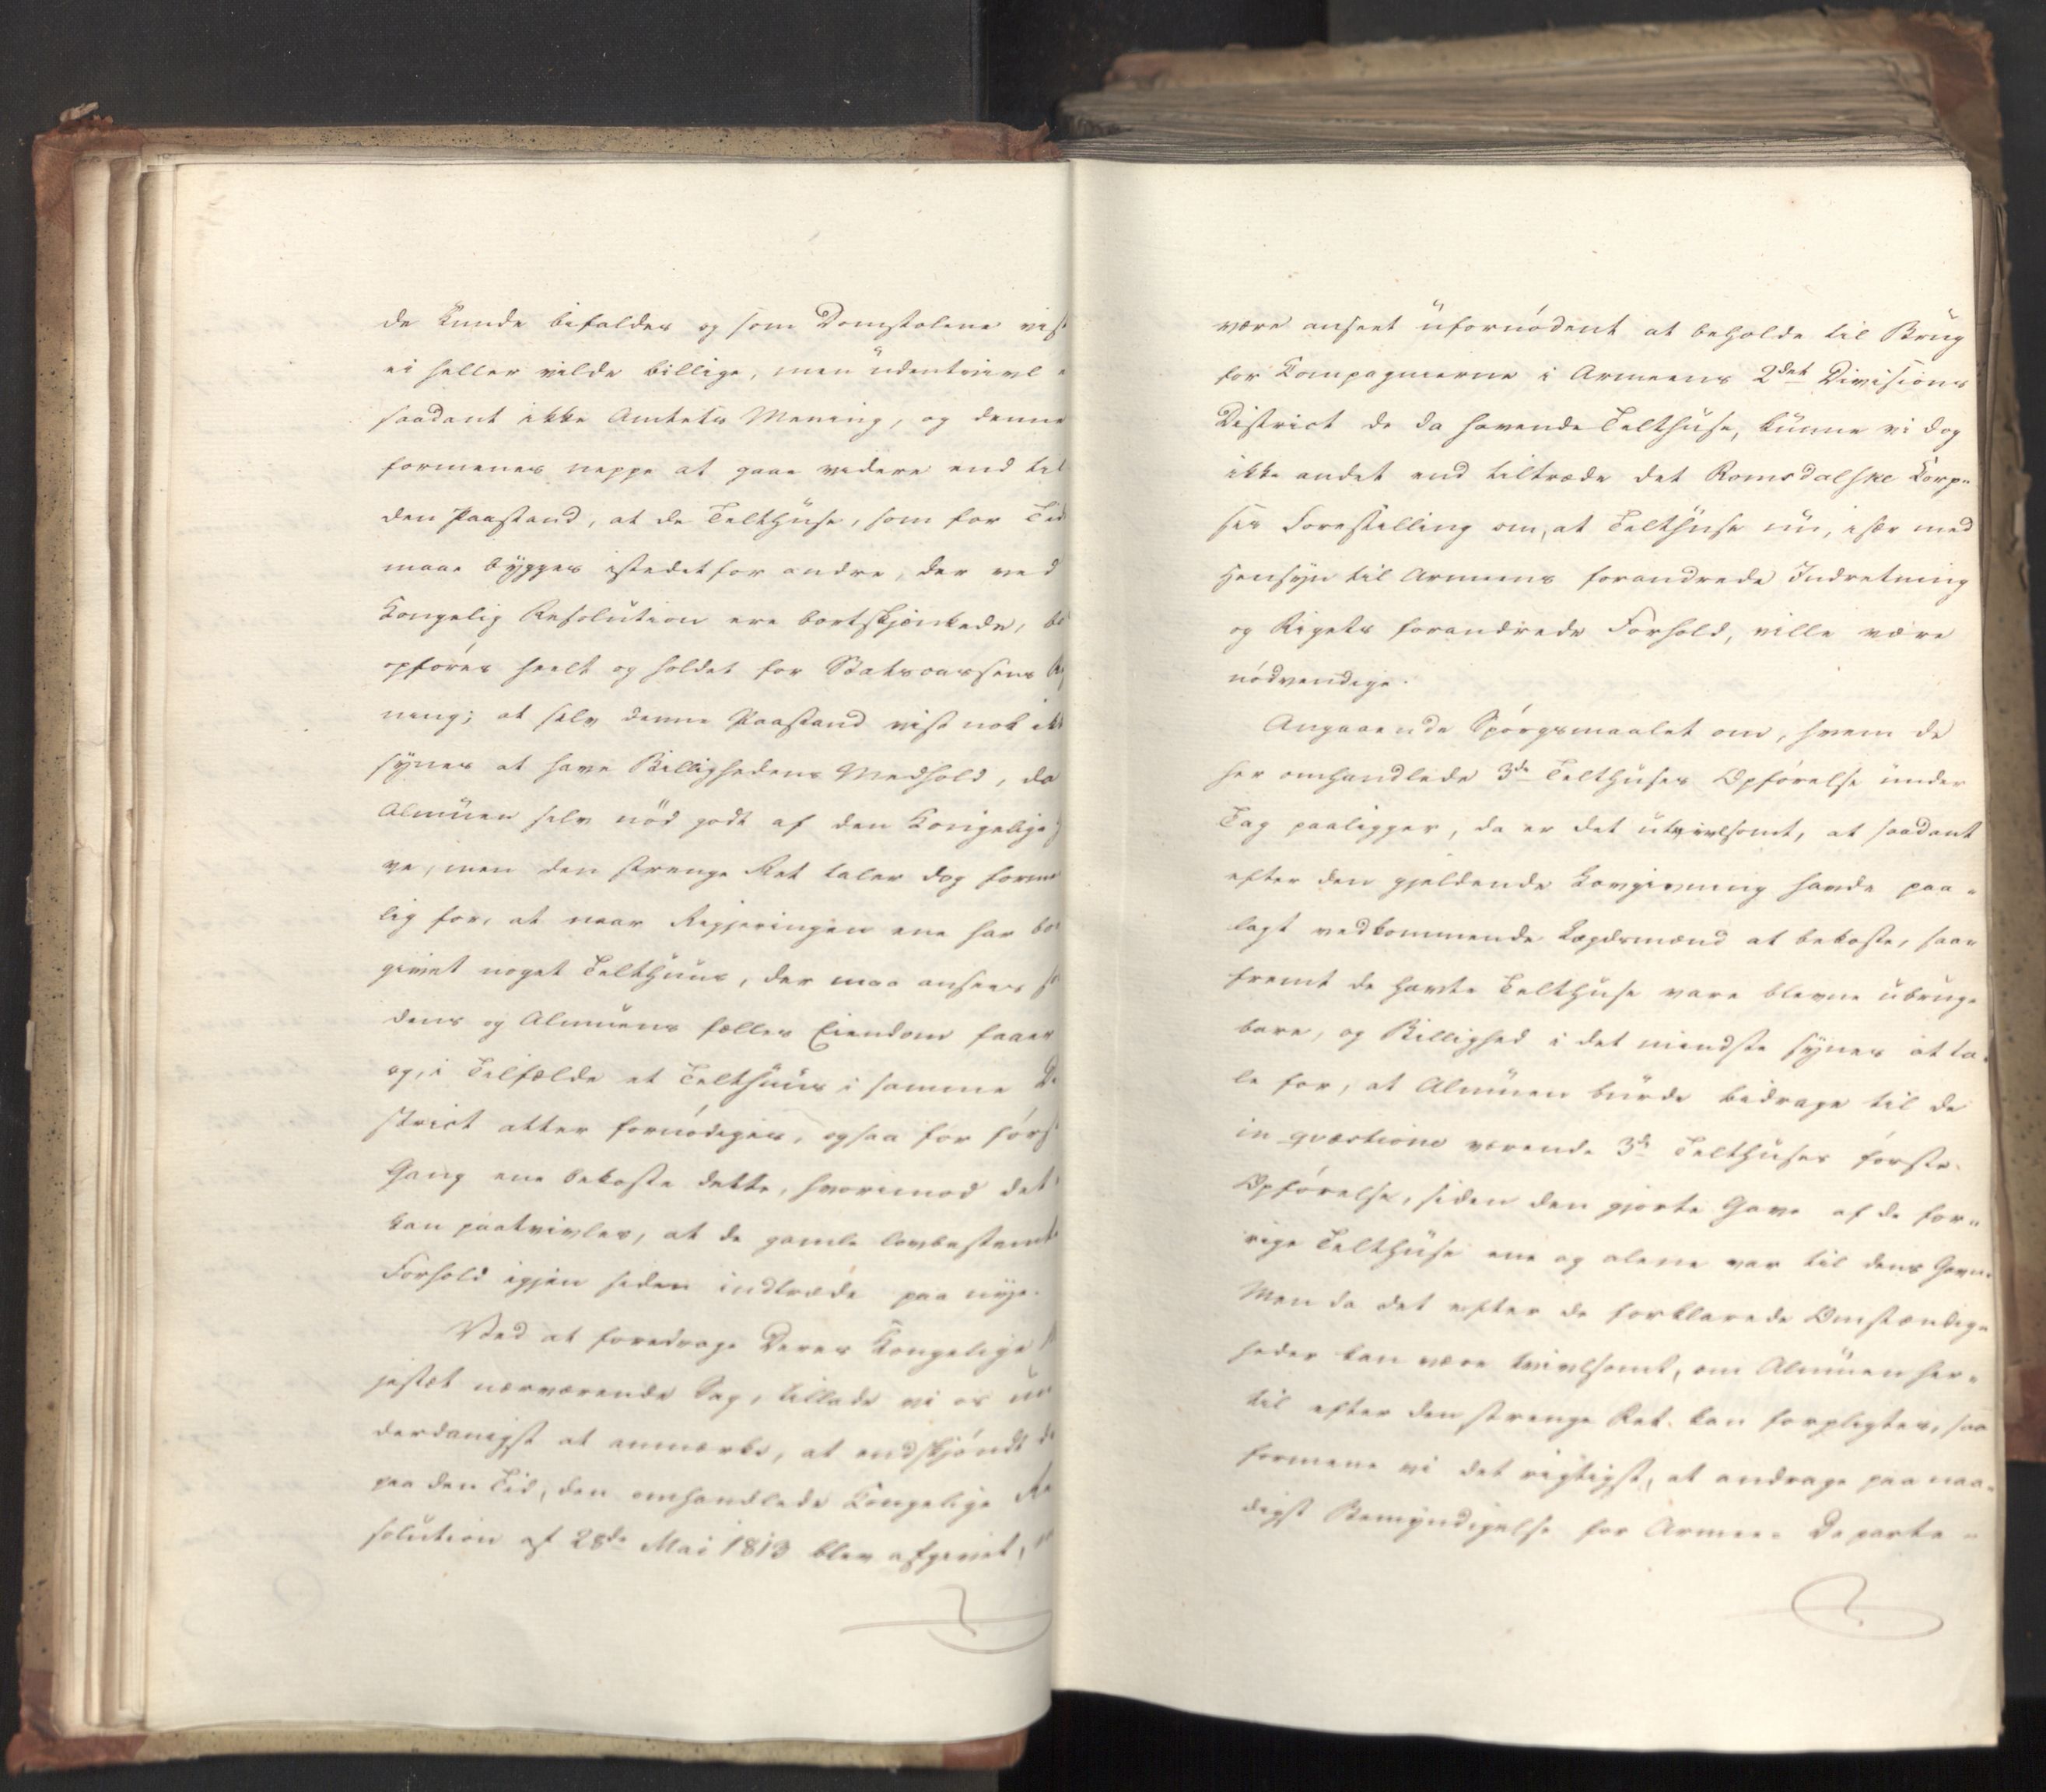 de kunde bifaldes og som Domstolene vist
ei heller vilde billige, men udentvivl e
saadant ikke Amtets Mening, og denne
formenes neppe at gaae videre end til
den Paastand, at de Telthuse, som for Tid
maae bygges istedetfor andre, der ved
Kongelig Resolution ere bortskjænkede, bø
opføres heelt og holdet for Statscassens Re
ning; at selv denne Paastand vist nok ikk
synes at have Billighedens Medhold, da
Almuen selv nød godt af den Kongelige G
ve, men den strenge Ret taler dog forme
lig for, at naar Regjeringen ene har bor
givet noget Telthuus, der maa ansees so
dens og Almuens fælles Eiendom faaer
og, i Tilfælde et Telthuus i samme Di
strict atter fornødiges, ogsaa for først
Gang ene bekoste dette, hvorimod det
kan paatvivles, at de gamle lovbestemte
Forhold igjen siden indtræde paa nye.
Ved at foredrage Deres Kongelige M
jestæt nærværende Sag, tillade vi os un
derdanigst at anmærke, at endskjøndt de
paa den Tid, den omhandlede Kongelige Re
solution af 28de Mai 1813 blev afgivet,
være anseet ufornødent at beholde til Brug
for Compagnierne i Armeens 2det Divisions
District de da havende Telthuse, kunne vi dog
ikke andet end tiltræde det Romsdalske Corp-
ses Forestilling om, at Telthuse nu, især med
Hensyn til Armeens forandrede Indretning
og Rigets forandrede Forhold, ville være
nødvendige.
Angaaende Spørgsmaalet om, hvem de
her omhandlede 3de Telthuses Opførelse under
Tag paaligger, da er det utvivlsomt, at saadant
efter den gjeldende Lovgivning havde paa-
lagt vedkommende Lægdsmænd at bekoste, saa-
fremt de havte Telthuse vare blevne ubrug-
bare, og Billighed i det mindste synes at ta-
le for, at Almuen burde bidrage til de
in quæstione værende 3de Telthuses første
Opførelse, siden den gjorte Gave af de for-
rige Telthuse ene og alene var til dens Gavn.
Men da det efter de forklarede Omstændig-
heder kan være tvivlsomt, om Almuen her-
til efter den strenge Ret kan forpligtes, saa
formene vi det rigtigst, at andrage paa naa-
digst Bemyndigelse for Armee-Departe-